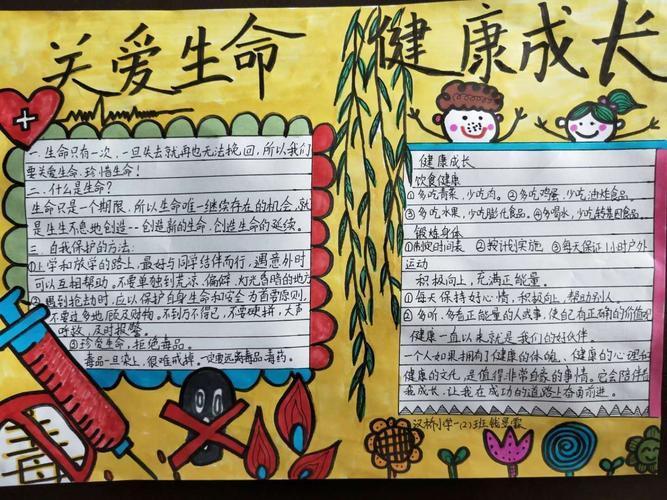 关爱生命
健康成长
一.生命只有一次,一旦失去就再也无法挽回,所以我们
要关爱生命.珍惜生命!
二.什么是生命?
生命只是一个期限,所以生命唯一继续存在的机会,就
是生生不息地创造--创造新的生命.创造生命的延续。
三.自我保护的方法:
①上学和放学的路上,最好与同学结伴而行,遇意外时
可以互相帮助,不要单独到荒凉.偏僻.灯光昏暗的地方
②遇到抢劫时,应以保护自身生命和安全为首要原则,
不要过多地顾及财物,不到万不得已,不要硬拼,大声
呼救,及时报警。
③珍爱生命,拒绝毒品。
毒品一旦染上,很难戒掉。一定要远离毒品.毒药。
毒
健康成长
饮食健康
①多吃青菜,少吃肉。②多吃鸡蛋,少吃油炸食品。
③多吃水果,少吃膨化食品。④多喝水,少吃转基因食品。
锻炼身体
①制定时间表 ②按计划实施 ③每天保证1小时户外
运动
积极向上,充满正能量。
①每天保持好心情,积极向上,帮助别人。
②多听,多看正能量的人或事,使自己有正确的价值观
健康一直以来就是我们的好伙伴。
一个人如果拥有了健康的体魄,健康的心理和
健康的文化,是值得非常自豪的事情。它会陪伴着
我成长,让我在成功的道路上奋勇前进。
汉桥小学一(2)班